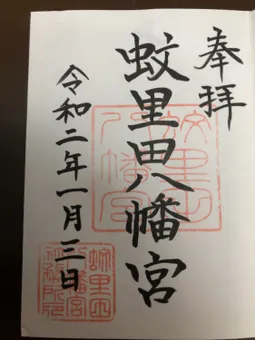 奉拝
蚊里田八幡宮
令和二年一月三日
蚊里田
八幡宮
蚊里田
八幡宮
社務所印